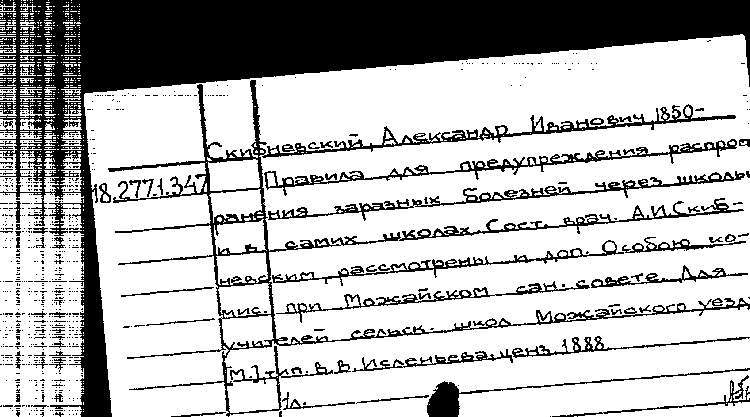 Скибневский, Александр Иванович, 1850-
18.277.1.347 Правила для предупреждения распрост
ранения заразных болезней через школы
и в самих школах. Сост. врач. А.И.Скиб-
невским, рассмотрены и доп. Особою ко-
мис. при Можайском сан. совете. Для
учителей сельск. школ Можайского уезд
[М.], тип. В.В. Исленьева, ценз. 1888.
1л.